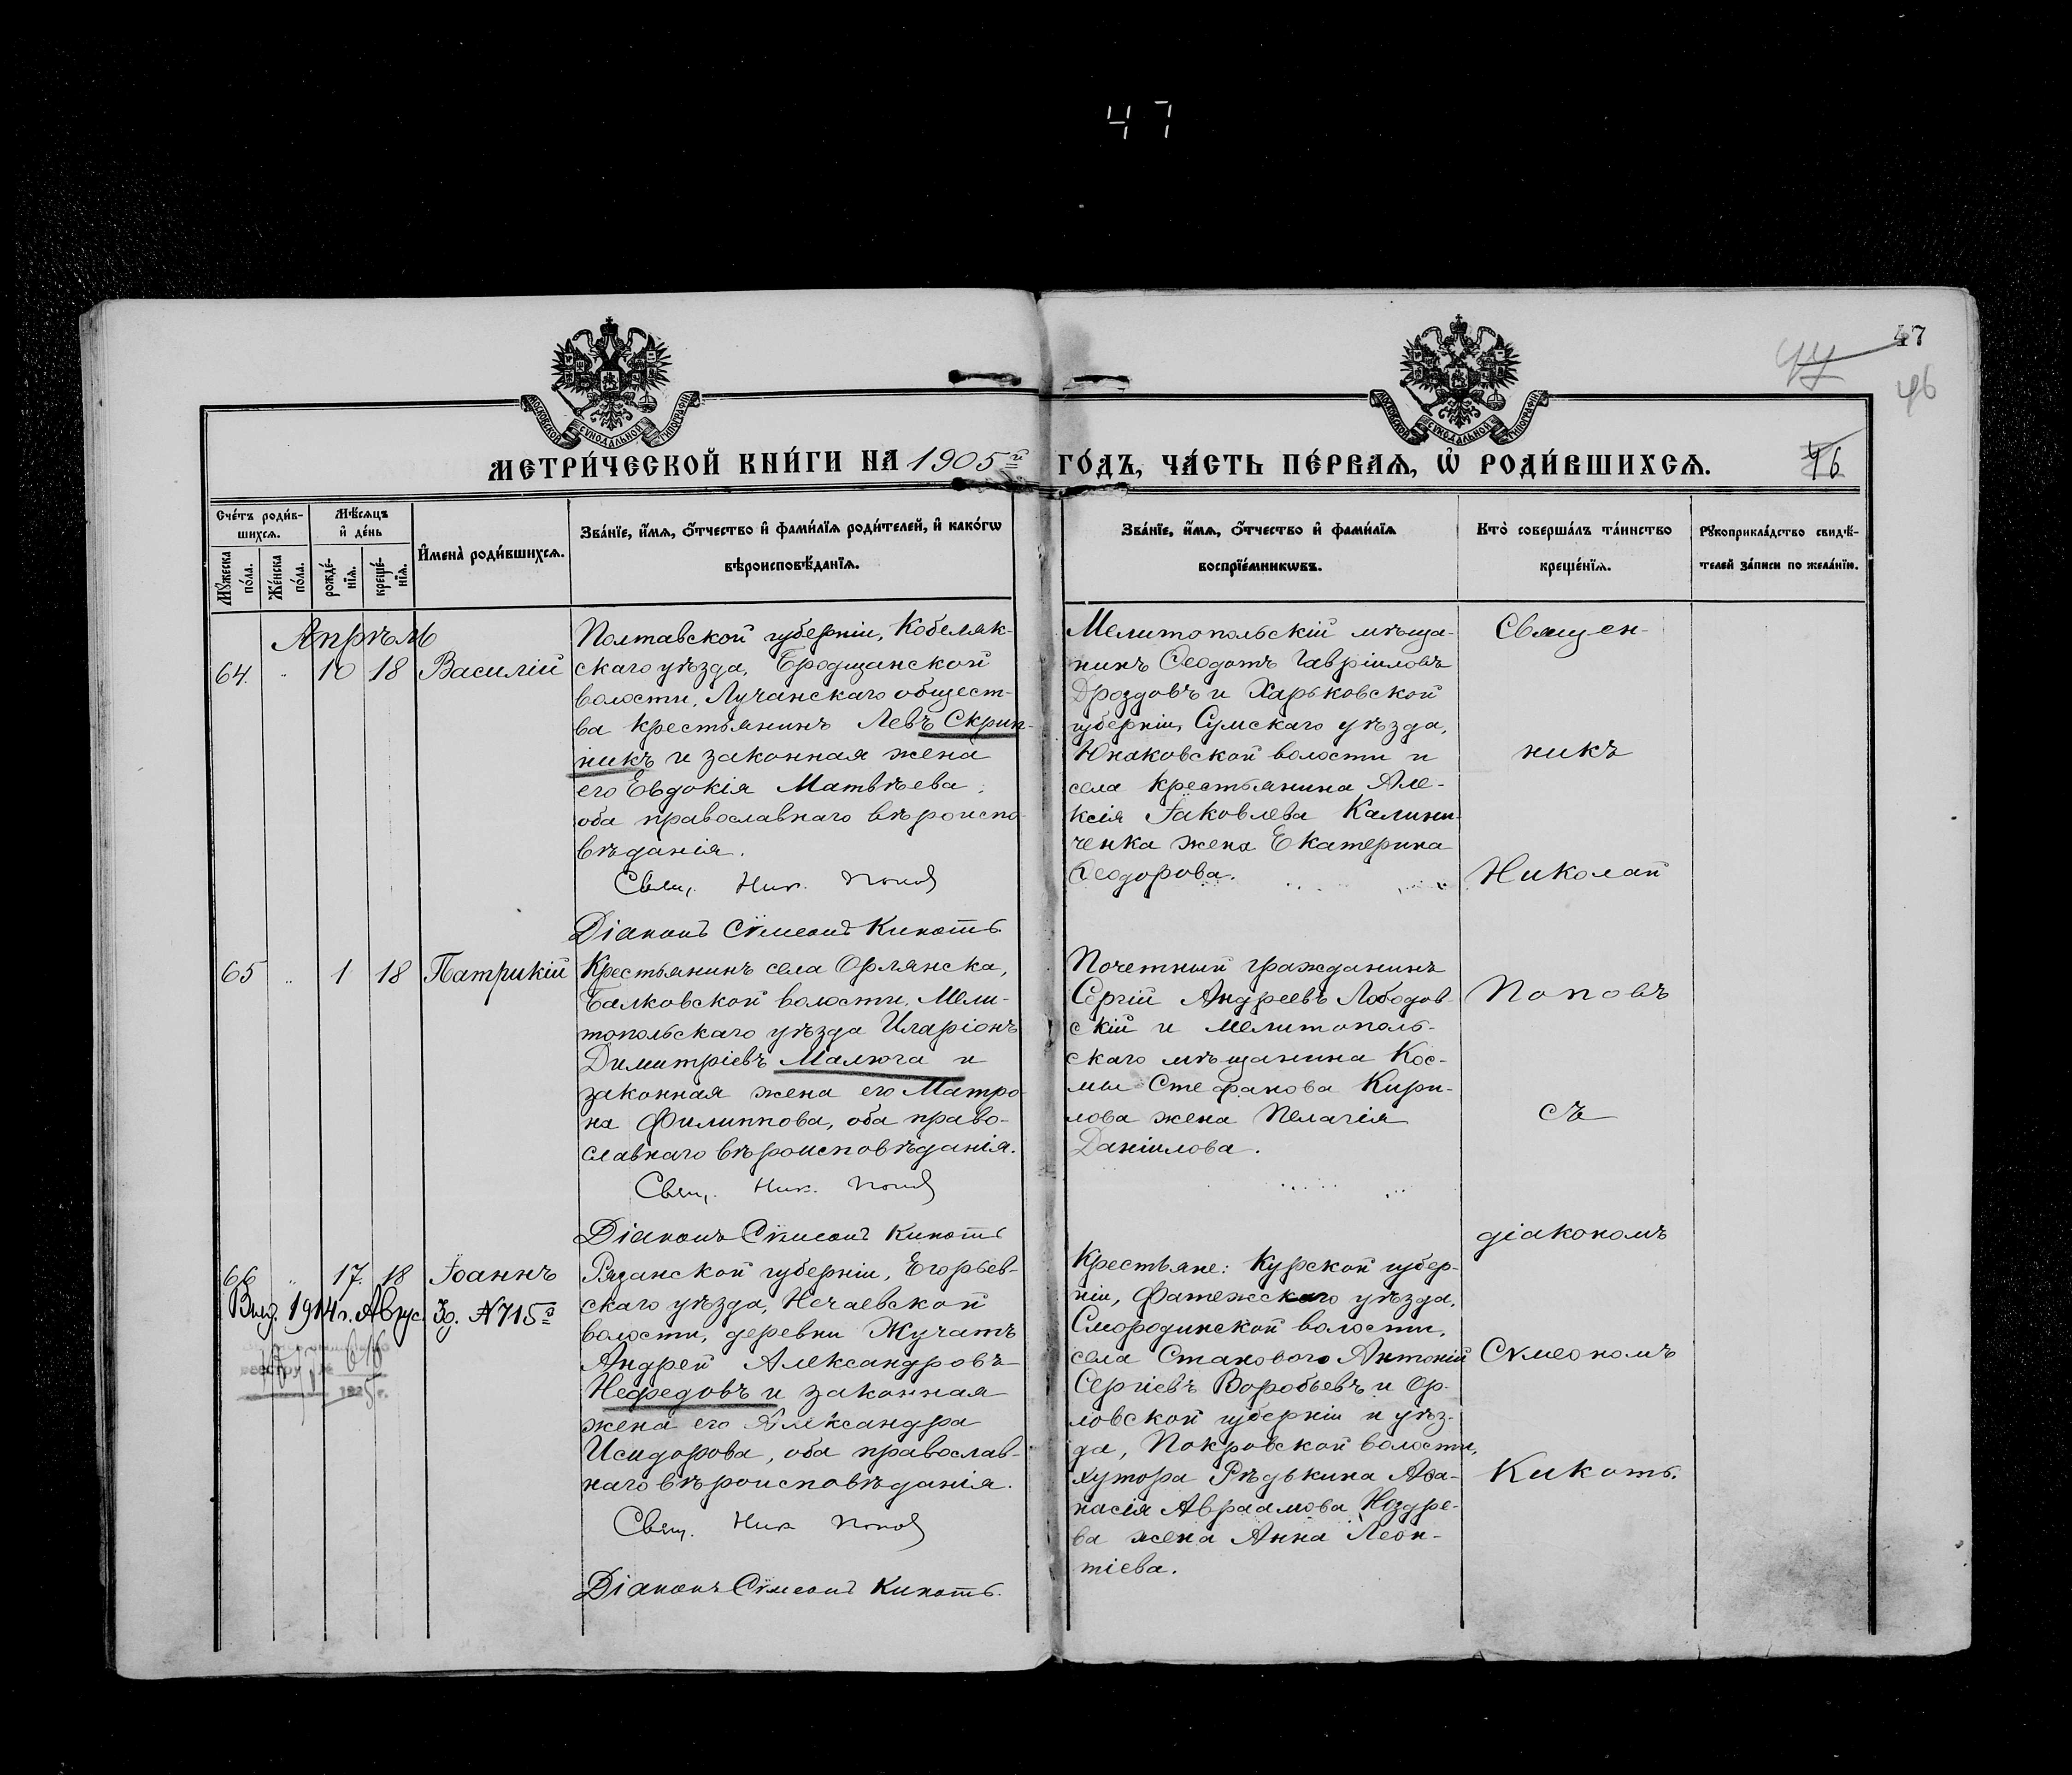 47
47
47
46
МОСКОВСКОЙ СѴНОДАЛЬНОЙ ТИПОГРАФІИ
МОСКОВСКОЙ СѴНОДАЛЬНОЙ ТИПОГРАФІИ
МЕТРИ́ЧЕСКОЙ КНИ́ГИ НА 1905й ГО́ДЪ, ЧА́СТЬ ПЕ́РВАѦ, Ѡ҆ РОДИ́ВШИХСѦ.
46
Сче́тъ роди́в-
шихсѧ.
Мꙋ́жеска по́ла.
Же́нска по́ла.
Мѣ́сѧцъ
и҆ де́нь
рожде́-
нїѧ.
креще́-
нїѧ.
И҆мена̀ роди́вшихсѧ.
Зва́нїе, и҆́мѧ, ѻ҆́тчество и҆ фами́лїѧ роди́телей, и҆ како́гѡ
вѣроисповѣ́данїѧ.
Зва́нїе, и҆́мѧ, ѻ҆́тчество и҆ фами́лїѧ
воспрїе́мникѡвъ.
Кто̀ соверша́лъ та́инство
креще́нїѧ.
Рꙋкоприкла́дство свидѣ́-
телей за́писи по жела́нїю.
Апрѣль
64. " 10 18 Василій
Полтавской губерніи, Кобеляк-
скаго уѣзда, Бродщанской
волости, Лучанскаго общест-
ва крестьянинъ Левъ Скрип-
никъ и законная жена
его Евдокія Матвѣева,
оба православнаго вѣроиспо-
вѣданія.
Свящ. Ник. Поповъ
Діаконъ Сѵмеонъ Кикоть.
Мелитопольскій мѣща-
нинъ Ѳеодотъ Гавріиловъ
Дроздовъ и Харьковской
губерніи, Сумскаго уѣзда,
Юнаковской волости и
села крестьянина Але-
ксія Іаковлева Калини-
ченка жена Екатерина
Ѳеодорова.
65 " 1 18 Патрикій
Крестьянинъ села Орлянска,
Балковской волости, Мели-
топольскаго уѣзда Иларіонъ
Димитріевъ Малюга и
законная жена его Матро-
на Филиппова, оба право-
славнаго вѣроисповѣданія.
Свящ. Ник. Поповъ
Діаконъ Сѵмеонъ Кикоть
Почетный гражданинъ
Сергій Андреевъ Лободов-
скій и мелитополь-
скаго мѣщанина Кос-
мы Стефанова Кири-
лова жена Пелагія
Даніилова.
66 " 17. 18 Іоаннъ
Выд. 1914 г. Авгус. 30. № 715й
реестру № 616
1925 г.
Рязанской губерніи, Егорьев-
скаго уѣзда, Нечаевской
волости, деревни Жучатъ
Андрей Александровъ
Нефедовъ и законная
жена его Александра
Исидорова, оба православ-
наго вѣроисповѣданія.
Свящ. Ник. Поповъ
Діаконъ Сѵмеонъ Кикоть.
Крестьяне: Курской губер-
ніи, Фатежскаго уѣзда,
Смородинской волости,
села Станового Антоній
Сергіевъ Воробьевъ и Ор-
ловской губерніи и уѣз-
да, Покровской волости,
хутора Рѣдькина Аѳа-
насія Авраамова Ноздре-
ва жена Анна Леон-
тіева.
Священ-
никъ
Николай
Поповъ
съ
діакономъ
Сѵмеономъ
Кикоть.